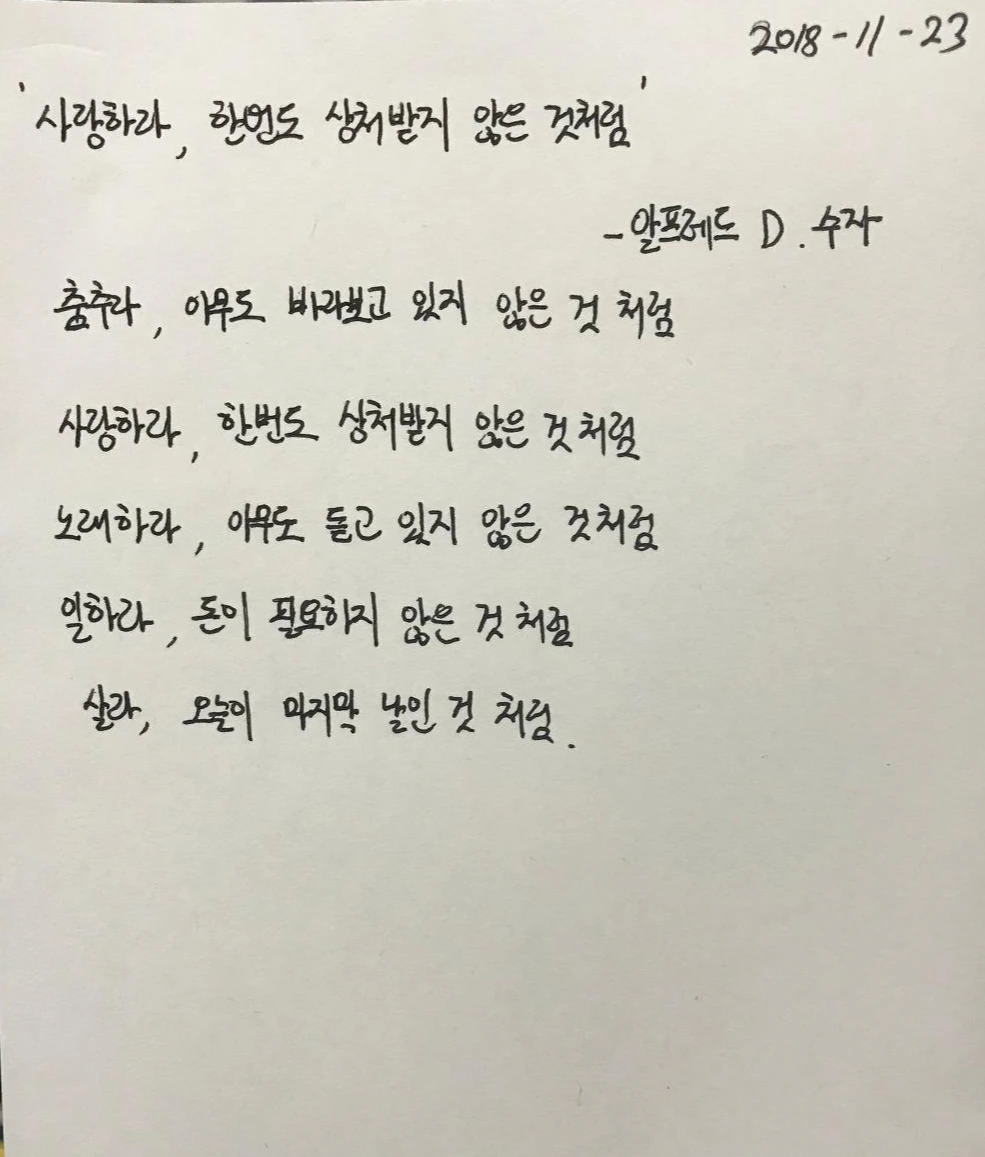 2018-11-23
'사랑하라, 한번도 상처받지 않은 것처럼'
-알프레드 D. 수자
춤추라, 아무도 바라보고 있지 않은 것 처럼
사랑하라, 한번도 상처받지 않은 것 처럼
노래하라, 아무도 듣고 있지 않은 것처럼
일하라, 돈이 필요하지 않은 것 처럼
살라, 오늘이 마지막 날인 것 처럼.